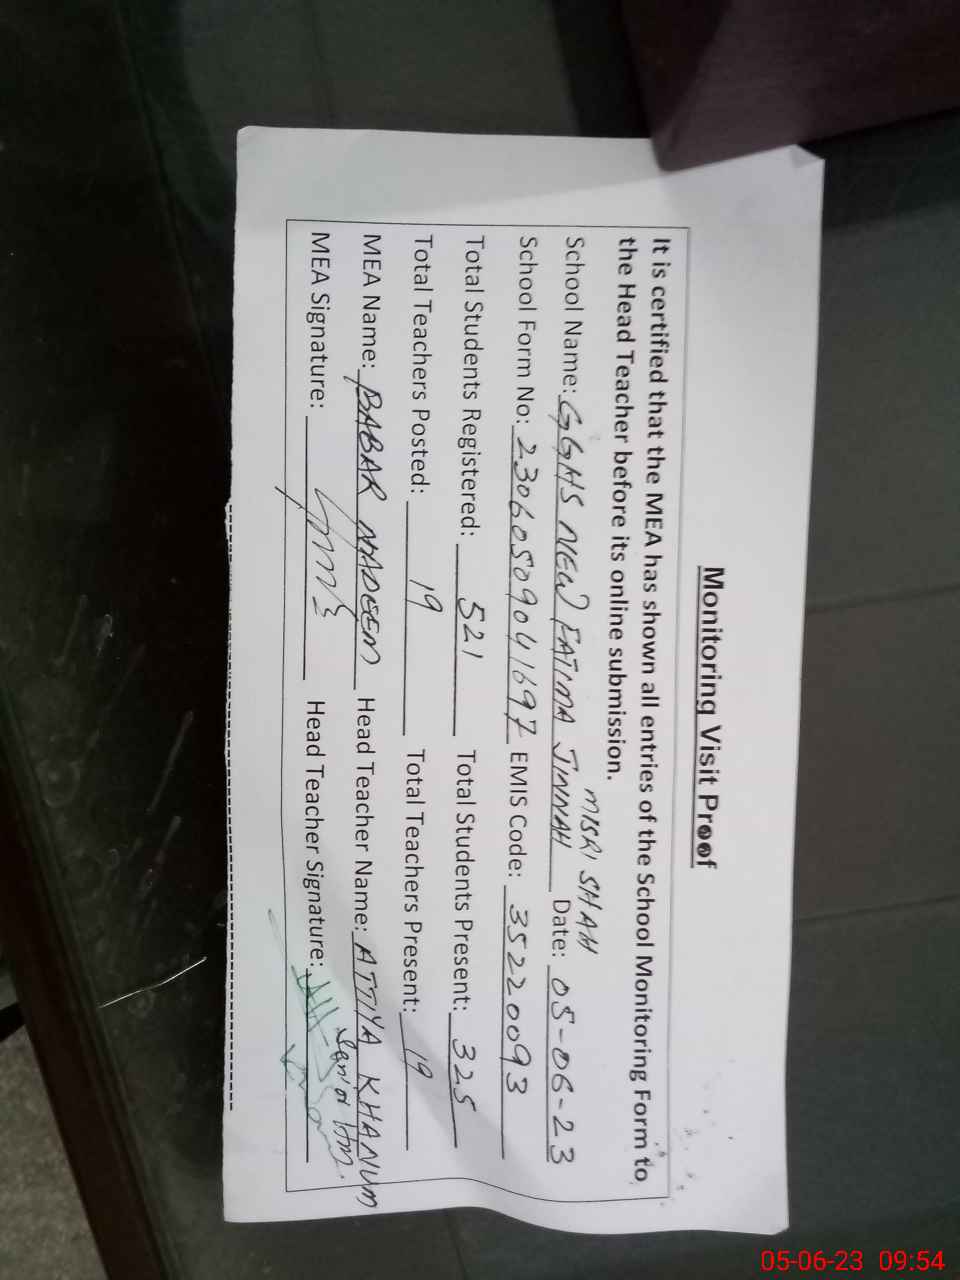 Monitoring Visit Proof
It is certified that the MEA has shown all entries of the School Monitoring Form to
the Head Teacher before its online submission.
MISRI SHAH
School Name: GGHS NEW FATIMA JINNAH Date: 05-06-23
School Form No: 23060509041697 EMIS Code: 35220093
Total Students Registered: 521 Total Students Present: 325
Total Teachers Posted: 19 Total Teachers Present: 19
MEA Name: BABAR NADEEM Head Teacher Name: ATTIYA KHANUM
MEA Signature: Head Teacher Signature:
05-06-23 09:54